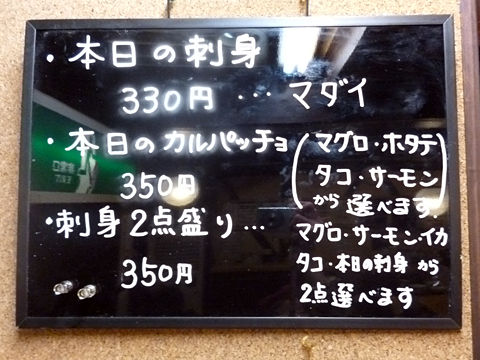 ・本日の刺身
330円 ・・・ マダイ
・本日のカルパッチョ
350円
(マグロ・ホタテ
タコ・サーモン)
から選べます。
・刺身2点盛り…
350円
マグロ・サーモン・イカ
タコ・本日の刺身から
2点選べます